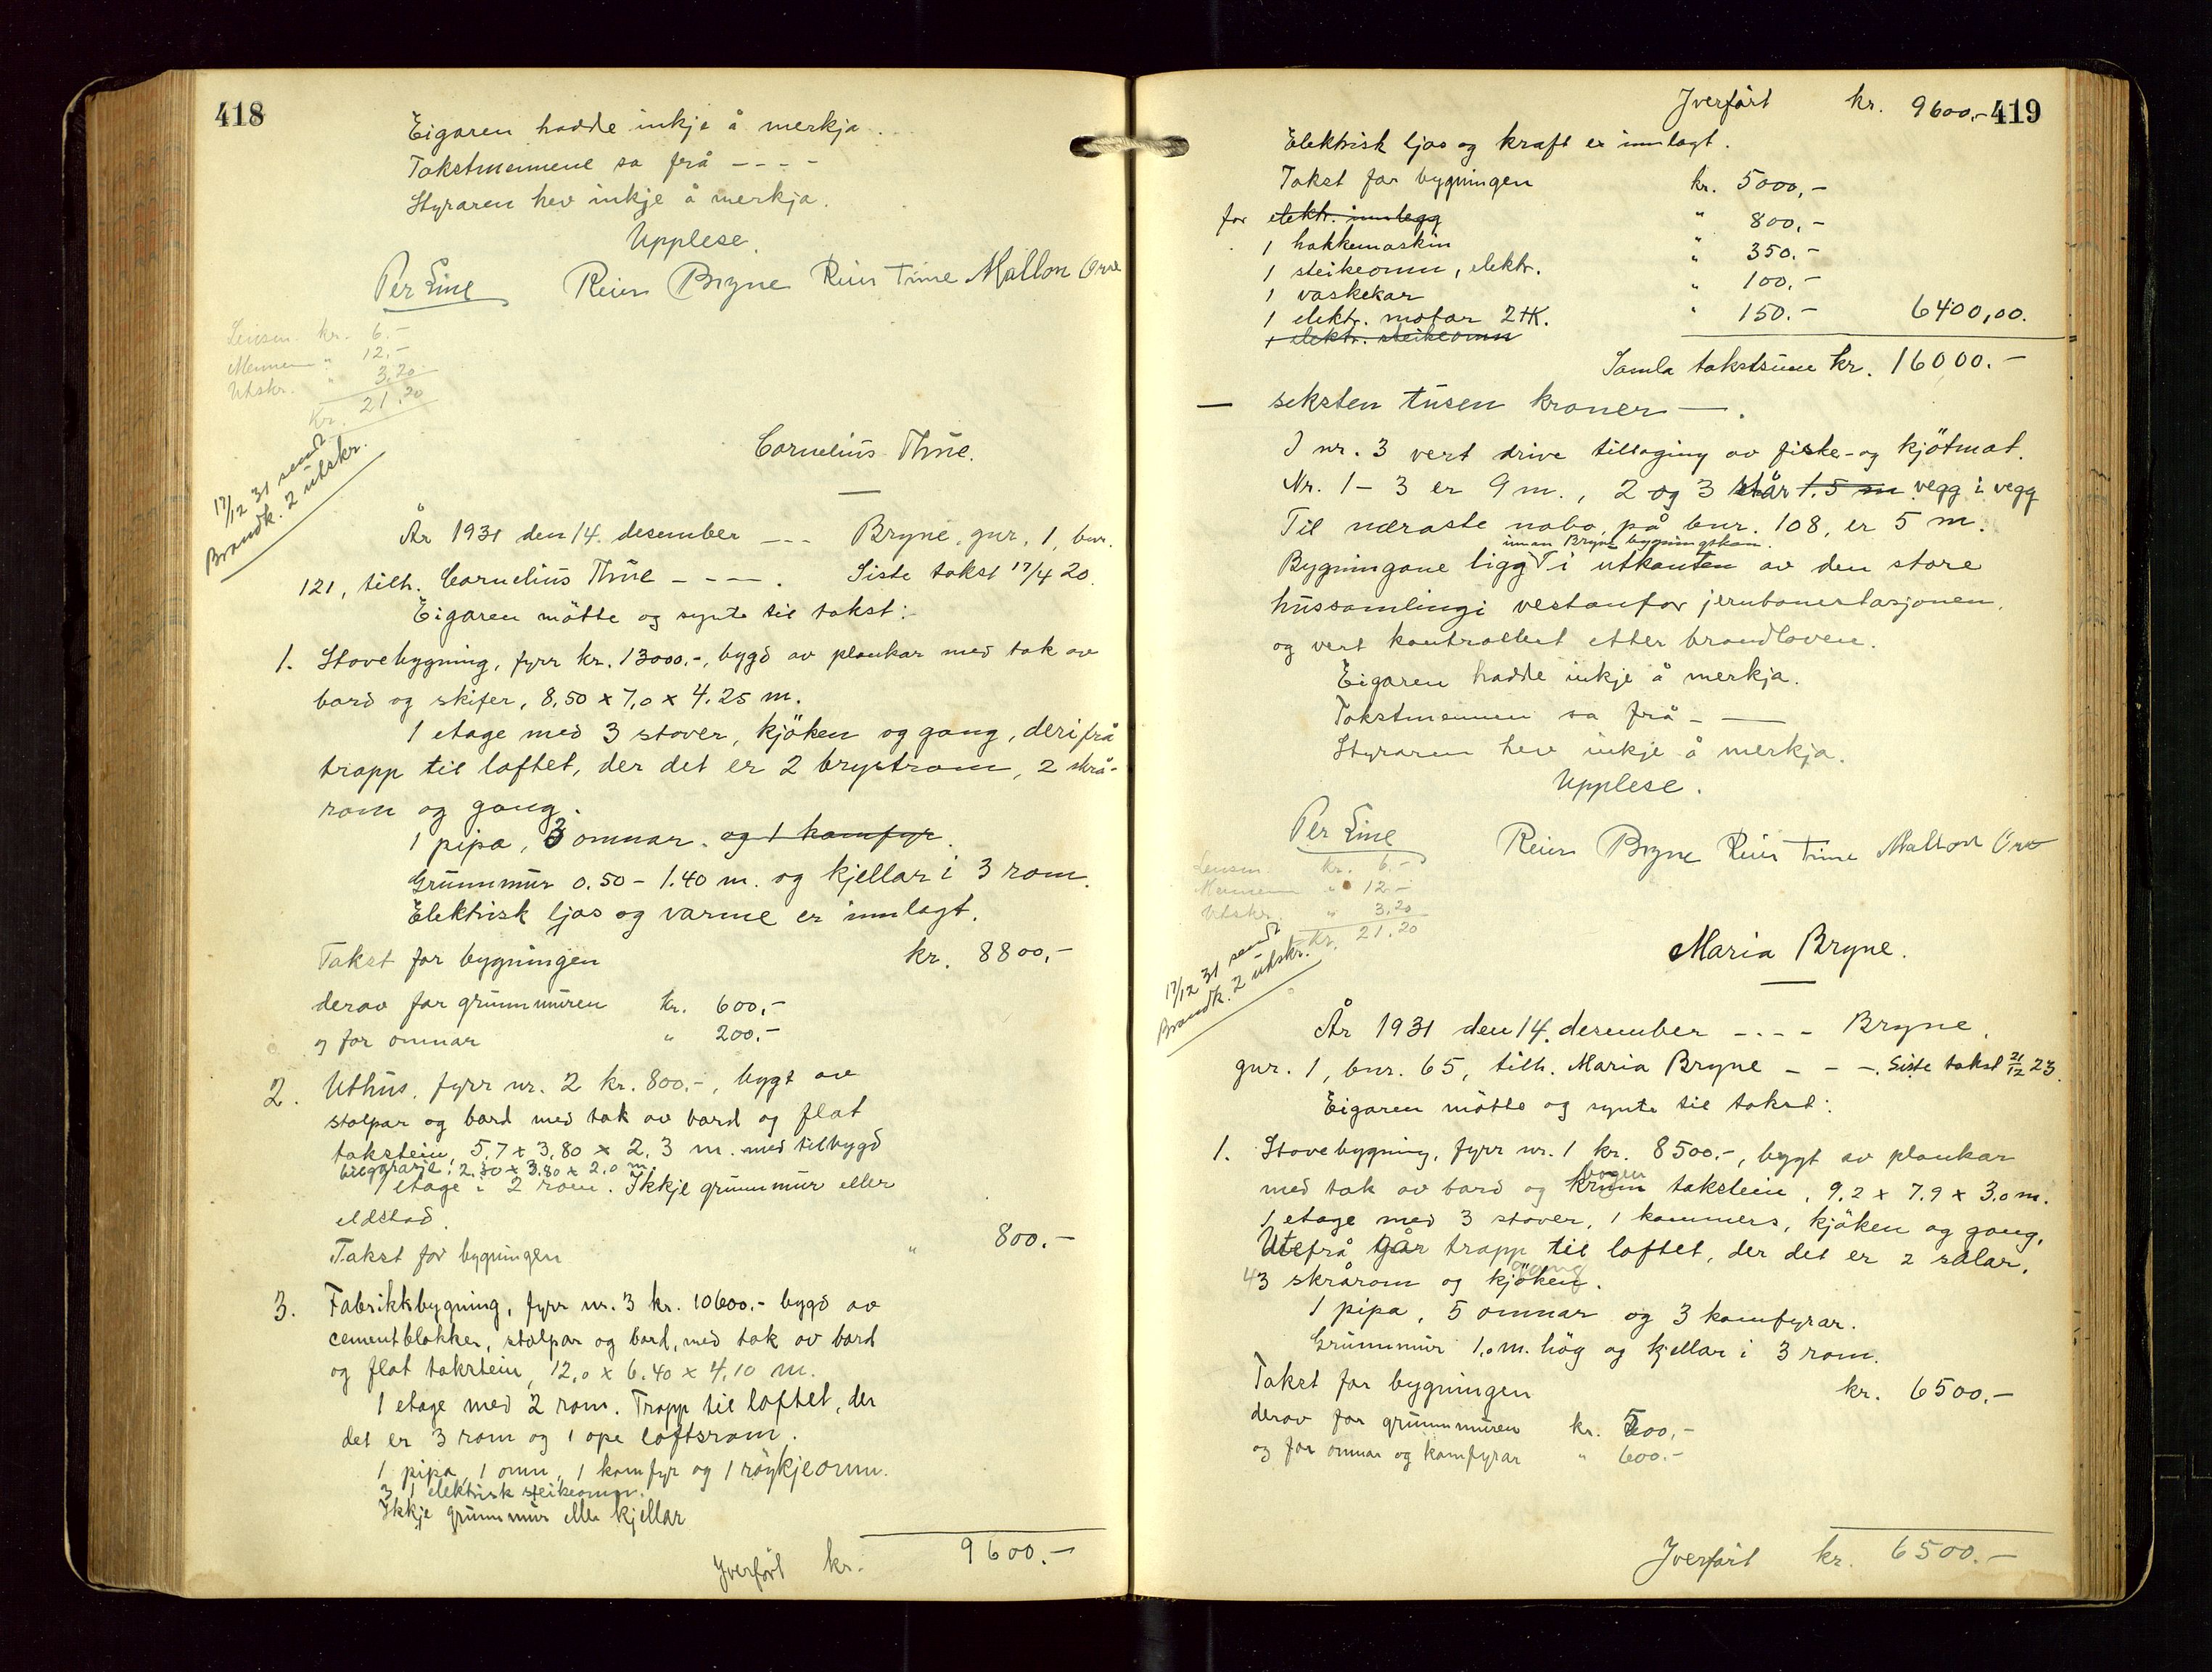 418
Eigaren hadde inkje å merkja.
Takstmennene sa frå - - - -
Styraren hev inkje å merkja.
Upplese.
Per Line Reier Bryne Reier Time Mallon
Lensm. kr. 6.-
Mennene " 12.-
Utskr. " 3,20
Kr. 21.20
17/12 31 sendt
Brandk. 2 utskr.
Cornelius Thue.
År 1931 den 14. desember - - - Bryne, gnr. 1, bnr.
121, tilh. Cornelius Thue - - - -. Siste takst 17/4 20.
Eigaren mötte og synte til takst:
1. Stovebygning, fyrr kr. 13000.-, bygd av plankar med tak av
bord og skifer, 8,50 x 7,0 x 4.25 m.
1 etage med 3 stover, kjöken og gang, derifrå
trapp til loftet, der det er 2 brystrom, 2 skrå-
rom og gang.
1 pipa, 3 omnar. og 1 komfyr.
Grunnmur 0.50 - 1.40 m. og kjellar i 3 rom.
Elektrisk ljos og varme er innlagt.
Takst for bygningen kr. 8800,-
derav for grunnmuren kr. 600,-
og for omnar " 200.-
2. Uthus, fyrr nr. 2 kr. 800.-, bygt av
stolpar og bord med tak av bord og flat
takstein, 5,7 x 3,80 x 2,3 m. med tilbygd
2,30 x 3,80 x 2,0 m.
1 etage i 2 rom. Ikkje grunnmur eller
eldstad.
Takst for bygningen " 800.-
3. Fabrikkbygning, fyrr nr. 3 kr. 10600.- bygd av
cementblokker, stolpar og bord, med tak av bord
og flat takstein, 12,0 x 6.40 x 4,10 m.
1 etage med 2 rom. Trapp til loftet, der
det er 3 rom og 1 ope loftsrom.
1 pipa, 1 omn, 1 komfyr og 1 röykjeomn.
1 elektrisk steikeomn.
Ikkje grunnmur eller kjellar
Yverført kr. 9600.-
419
Yverført kr. 9600.-
Elektrisk ljos og kraft er innlagt.
Takst for bygningen kr. 5000,-
for elektr. innlegg " 800,-
1 hakkemaskin " 350.-
1 steikeomn, elektr. " 100,-
1 vaskekar " 150.- 6400,00.
1 elektr. motor 2 HK.
1 elektr. steikeomn
Samla takstsum kr. 16000.-
— seksten tusen kroner —.
I nr. 3 vert drive tillaging av fiske- og kjötmat.
Nr. 1 - 3 er 9 m., 2 og 3 står 1.5 m vegg i vegg
Til næraste nabo, på bnr. 108, er 5 m.
innan Bryne bygningskom.
Bygningane ligg i utkanten av den store
hussamlingi vestanfor jernbanestasjonen,
og vert kontrollert etter brandloven.
Eigaren hadde inkje å merkja.
Takstmennene sa frå - —
Styraren hev inkje å merkja.
Upplese.
Per Line Reier Bryne Reier Time Mallon
Lensm. kr. 6.-
Mennene " 12.-
Utskr. " 3,20
Kr. 21.20
17/12 31 sendt
Brandk. 2 utskr.
Maria Bryne.
År 1931 den 14. desember - - - - Bryne,
gnr. 1, bnr. 65, tilh. Maria Bryne - - -. Siste takst 21/12 23.
Eigaren mötte og synte til takst:
1. Stovebygning, fyrr nr. 1 kr. 8500.-, bygt av plankar
bogen
med tak av bord og krum takstein, 9,2 x 7.9 x 3.0 m.
1 etage med 3 stover, 1 kammers, kjöken og gang.
Utefrå går trapp til loftet, der det er 2 salar,
gang
43 skrårom og kjöken.
1 pipa, 5 omnar og 3 komfyrar.
Grunnmur 1,0 m. hög og kjellar i 3 rom.
Takst for bygningen kr. 6500.-
derav for grunnmuren kr. 500,-
og for omnar og komfyrar " 600.-
Yverført kr. 6500.-